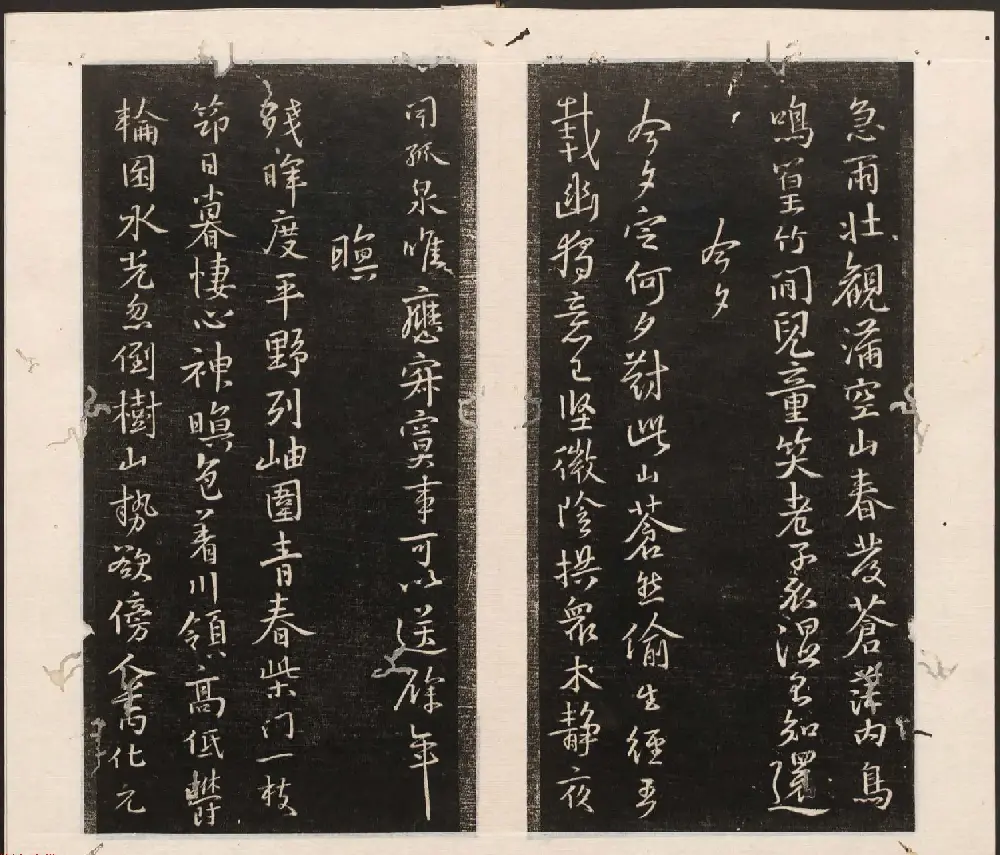 急雨壯觀滿空山春發蒼茫内鳥
鳴篁竹間兒童笑老子衣濕不知還
今夕
今夕定何夕對此山蒼然偷生經五
載幽獨意已堅微陰拱衆木静夜
聞孤泉唯應寂寞事可以送餘年
暝
殘暉度平野列岫圍青春柴門一枝
筇日暮悽心神暝色着川領高低鬱
輪囷水光忽倒樹山勢欲傍人萬化元